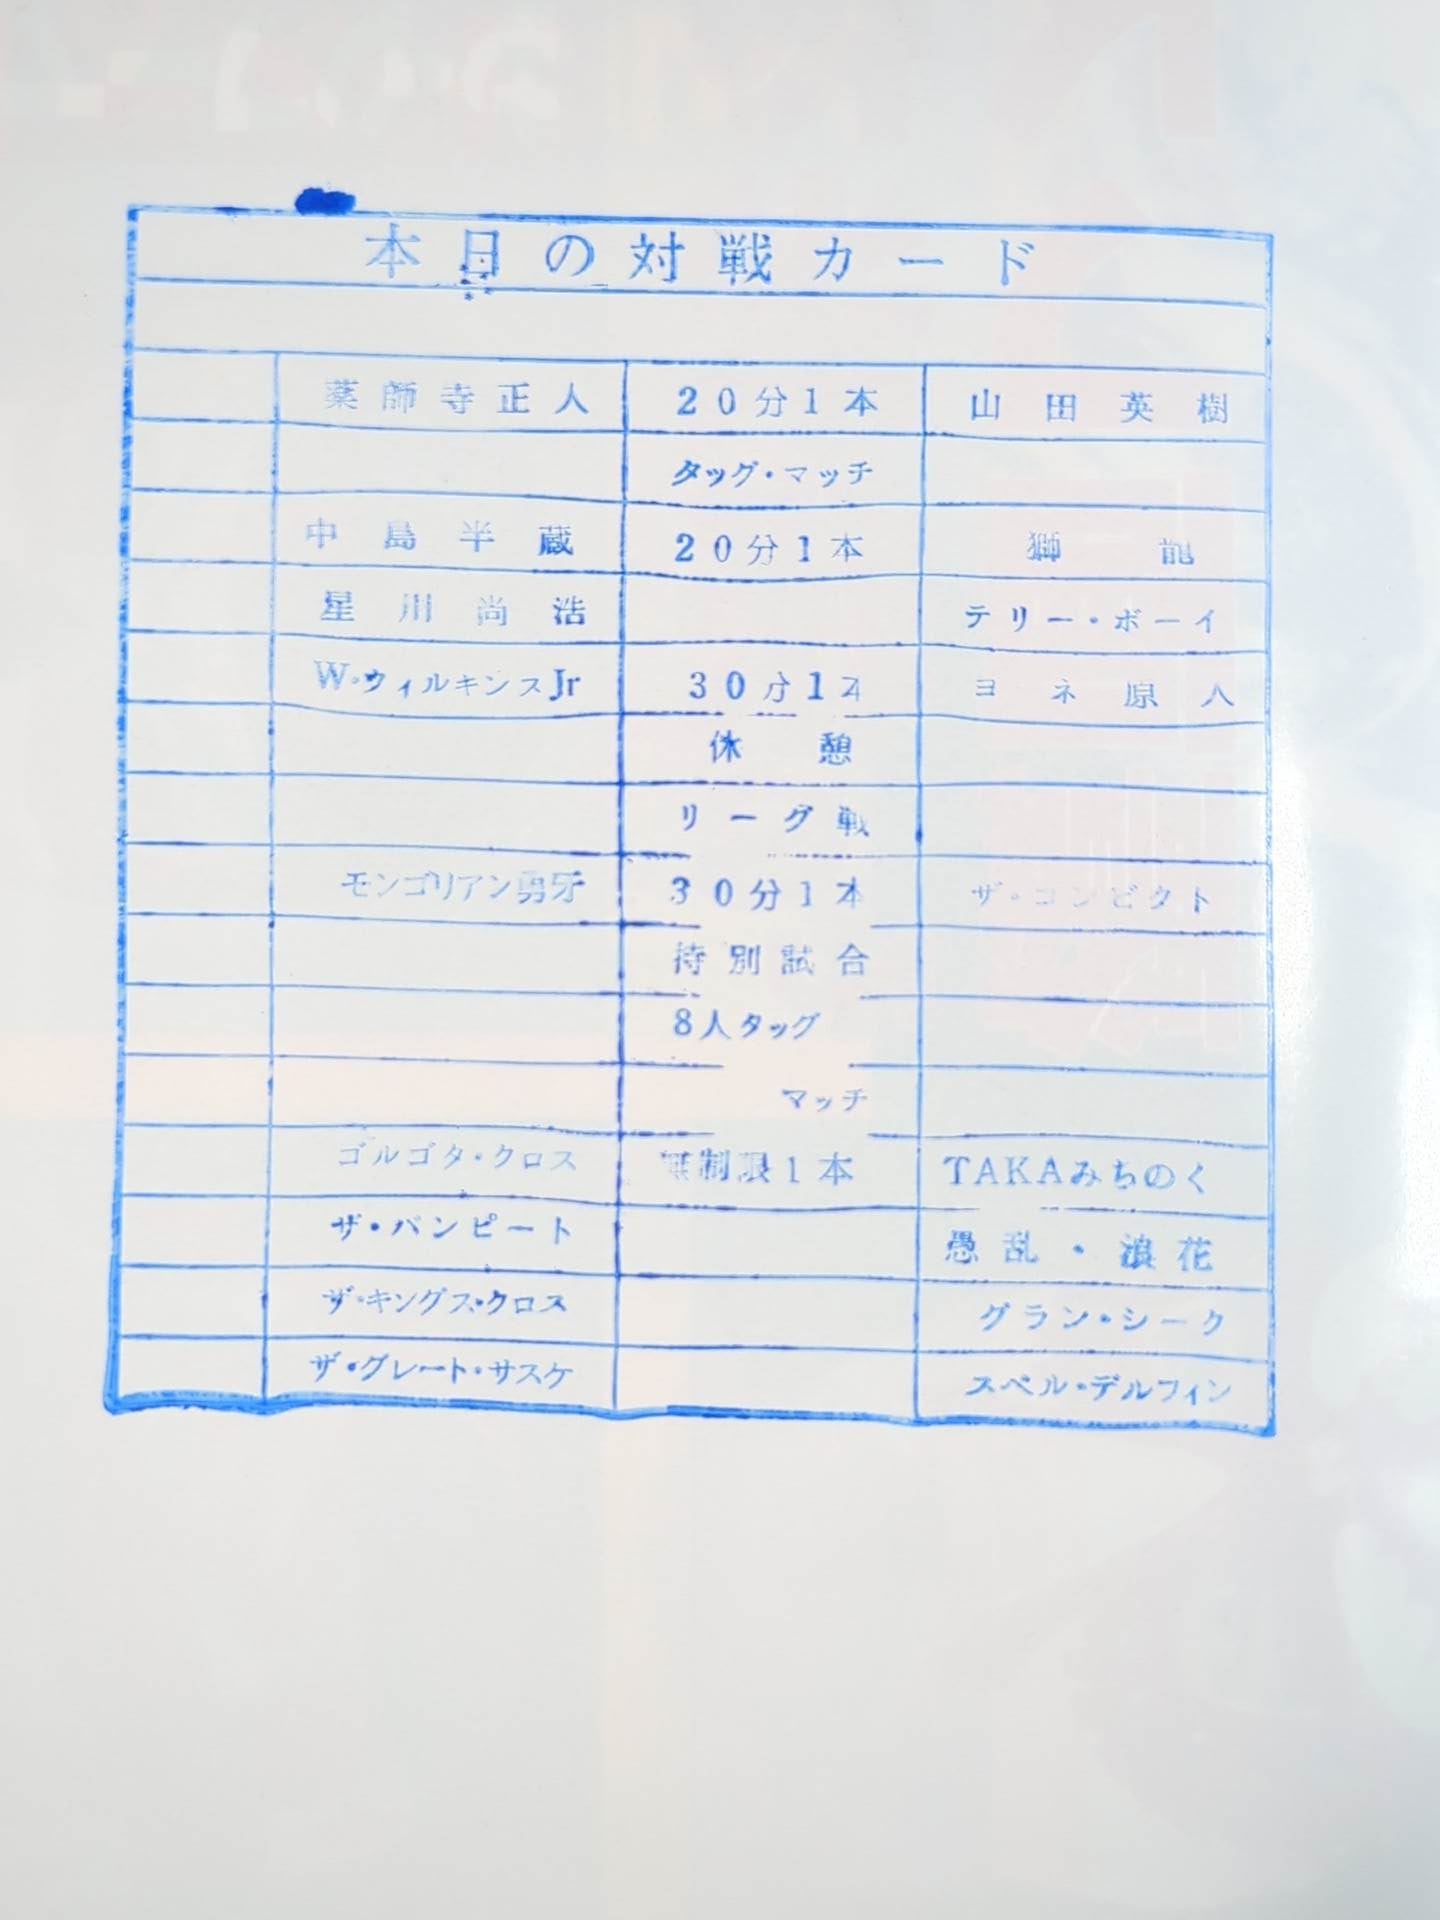 本日の対戦カード
薬師寺正人 20分1本 山田英樹
タッグ・マッチ
中島半蔵 20分1本 獅龍
星川尚浩 テリー・ボーイ
W・ウィルキンスJr 30分1本 ヨネ原人
休憩
リーグ戦
モンゴリアン勇牙 30分1本 ザ・コンビクト
特別試合
8人タッグ
マッチ
ゴルゴタ・クロス 無制限1本 TAKAみちのく
ザ・バンピート 愚乱・浪花
ザ・キングス・クロス グラン・シーク
ザ・グレート・サスケ スペル・デルフィン